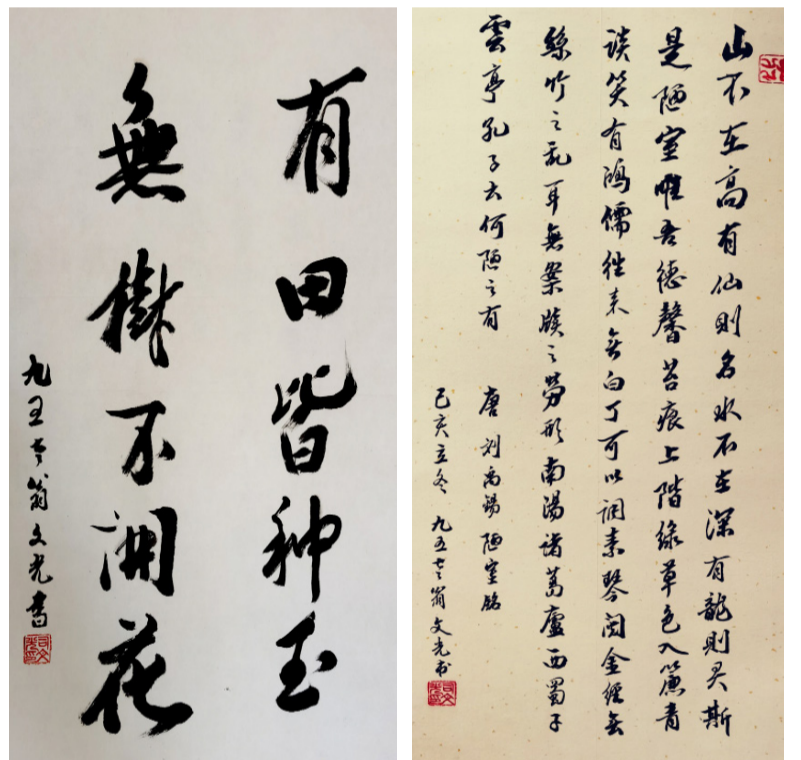 有田皆种玉
無樹不開花
九五老翁文光書
山不在高有仙則名水不在深有龍則灵斯
是陋室唯吾德馨苔痕上階緑草色入簾青
談笑有鴻儒往来無白丁可以調素琴閲金經無
絲竹之乱耳無案牘之勞形南陽諸葛廬西蜀子
雲亭孔子云何陋之有 唐刘禹锡陋室銘
己亥立冬 九五老翁文光书